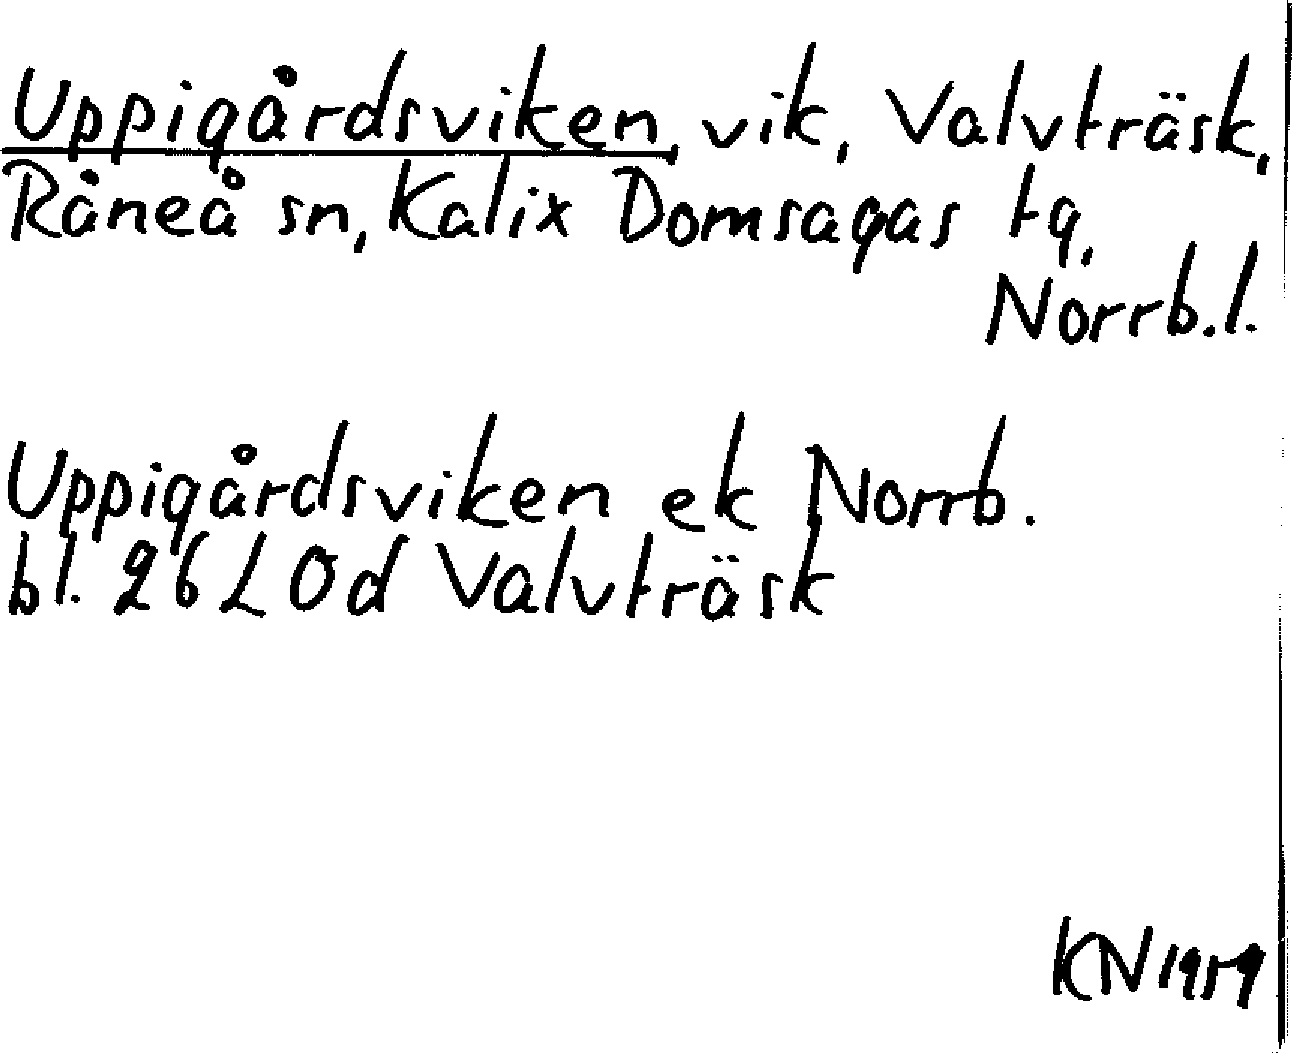 Uppigårdsviken, vik, Valvträsk,
Råneå sn, Kalix Domsagas tg,
Norrb.l.
Uppigårdsviken ek Norrb.
bl. 26 L 0d Valvträsk
KN 1959